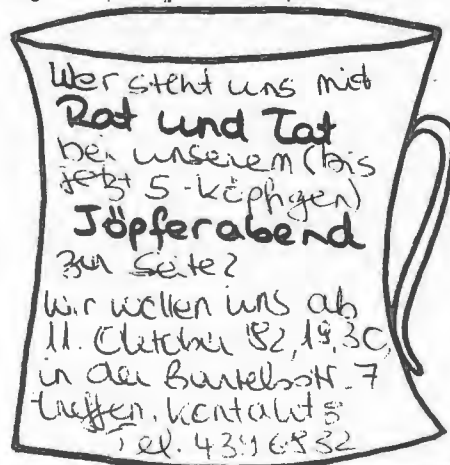 Wer steht uns mit
Rat und Tat
bei unserem (bis
jetzt 5-köpfigen)
Töpferabend
zur Seite?
Wir wollen uns ab
11. Oktober 82, 19.30,
in der Bartelsstr. 7
treffen. Kontakt:
Tel. 439 68 32